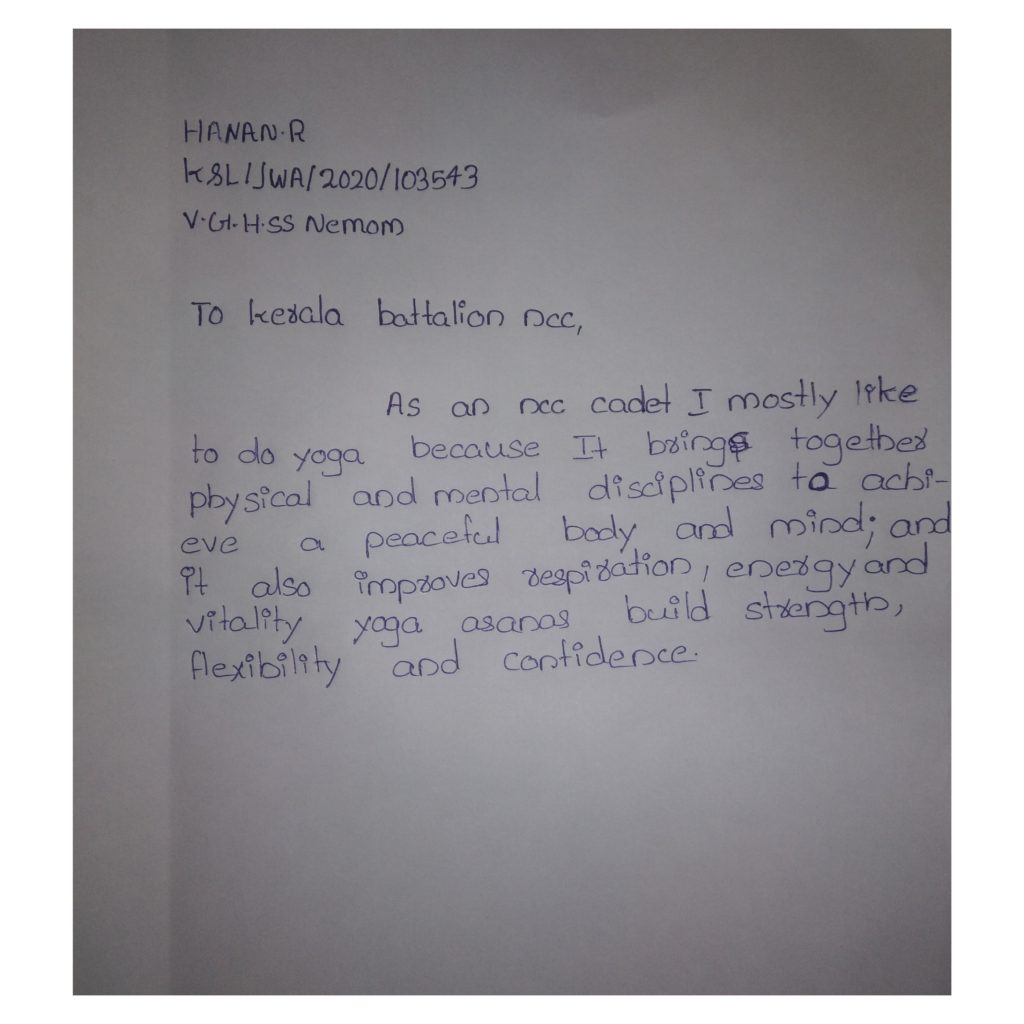 HANAN.R
KSL/JWA/2020/103543
V.G.H.SS Nemom
To kerala battalion ncc,
As an ncc cadet I mostly like
to do yoga because It brings together
physical and mental disciplines to achi-
eve a peaceful body and mind; and
it also improves respiration, energy and
vitality yoga asanas build strength,
flexibility and confidence.